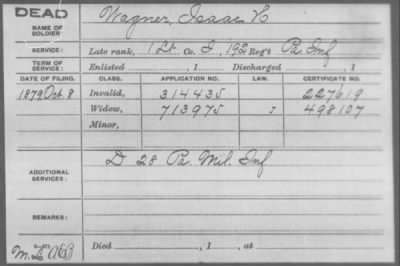 DEAD
NAME OF SOLDIER: Wagner, Isaac K
SERVICE: Late rank, 1 Lt Co. I, 192 Reg't Pa Inf
TERM OF SERVICE: Enlisted , 1 Discharged , 1
DATE OF FILING. CLASS. APPLICATION NO. LAW. CERTIFICATE NO.
1879 Oct. 8 Invalid, 314435 227619
Widow, 713975 498107
Minor,
ADDITIONAL SERVICES: D 28 Pa. Mil. Inf
REMARKS:
Died , 1 , at